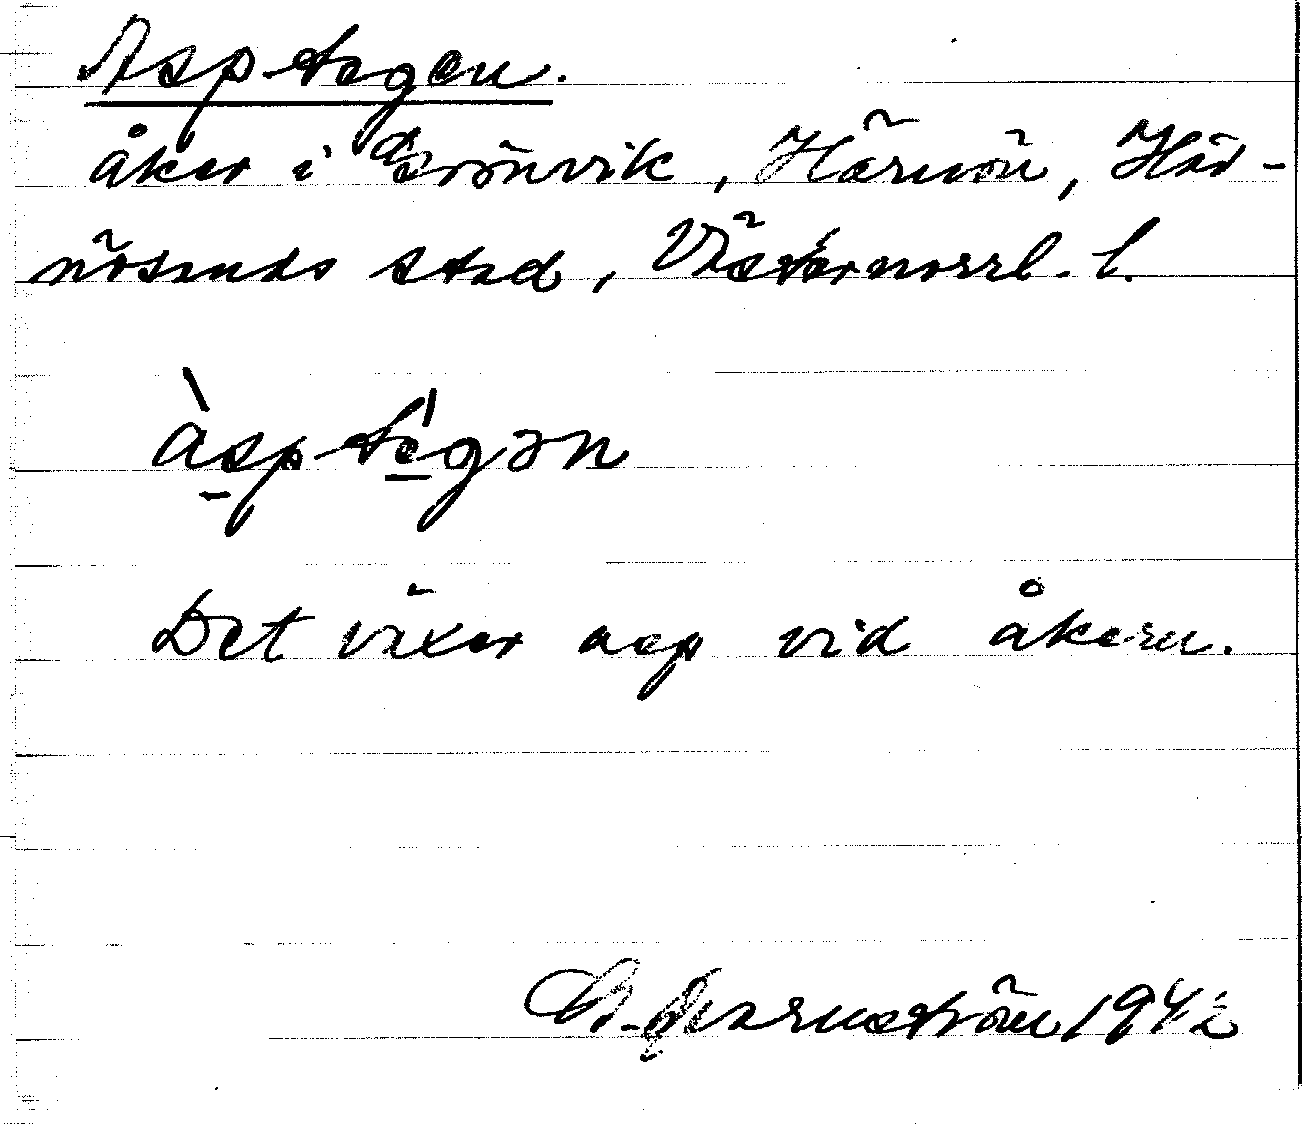 Asptegen.
åker i Grönvik, Härnön, Här-
nösands stad, Västernorrl. l.
àsptégən
Det växer asp vid åkern.
1942